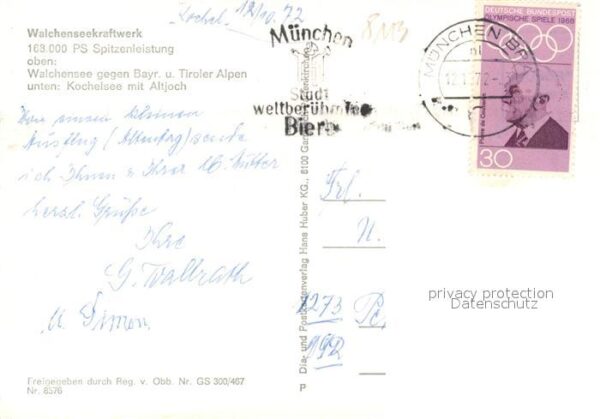 Kochel, 12/10.72
8113
Walchenseekraftwerk
163.000 PS Spitzenleistung
oben:
Walchensee gegen Bayr. u. Tiroler Alpen
unten: Kochelsee mit Altjoch
München
Stadt
weltberühmten
Biers
MÜNCHEN BP
DEUTSCHE BUNDESPOST
OLYMPISCHE SPIELE 1968
30
Von einem kleinen
Ausflug (Altentag) sende
ich Ihnen u. Ihrer lb. Mutter
herzl. Grüße
Ihre
G. Wallrath
u. Simon
Frl.
N.
7273
Dia- und Postkartenverlag Hans Huber KG., 8100 Garmisch-Partenkirchen
privacy protection
Datenschutz
Freigegeben durch Reg. v. Obb. Nr. GS 300/467
Nr. 8576
P